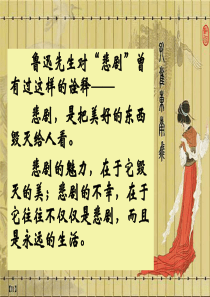 鲁迅先生对“悲剧”曾
有过这样的诠释——
悲剧，是把美好的东西
毁灭给人看。
悲剧的魅力，在于它毁
灭的美；悲剧的不幸，在于
它往往不仅仅是悲剧，而且
是永远的生活。
孔雀东南飞